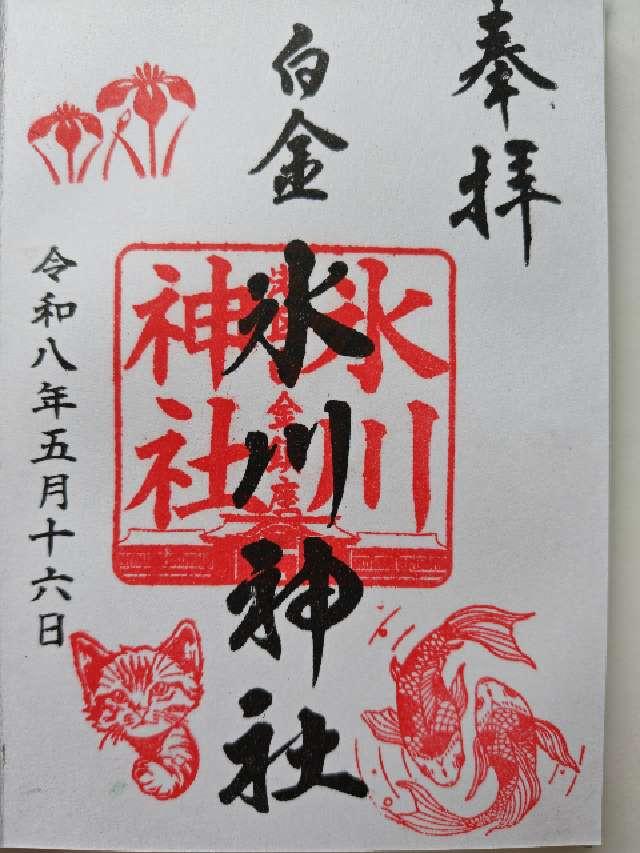 奉拝
白金
氷川神社
氷川
神社
令和八年五月十六日